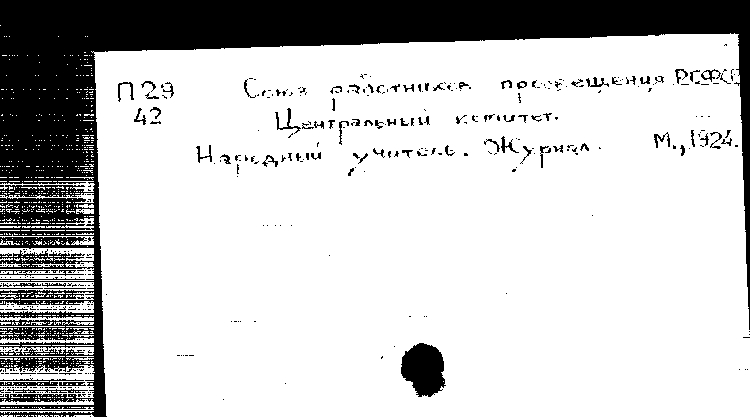 П 29 Союз работников просвещения РСФСР
42 Центральный комитет.
Народный учитель. Журнал. М., 1924.